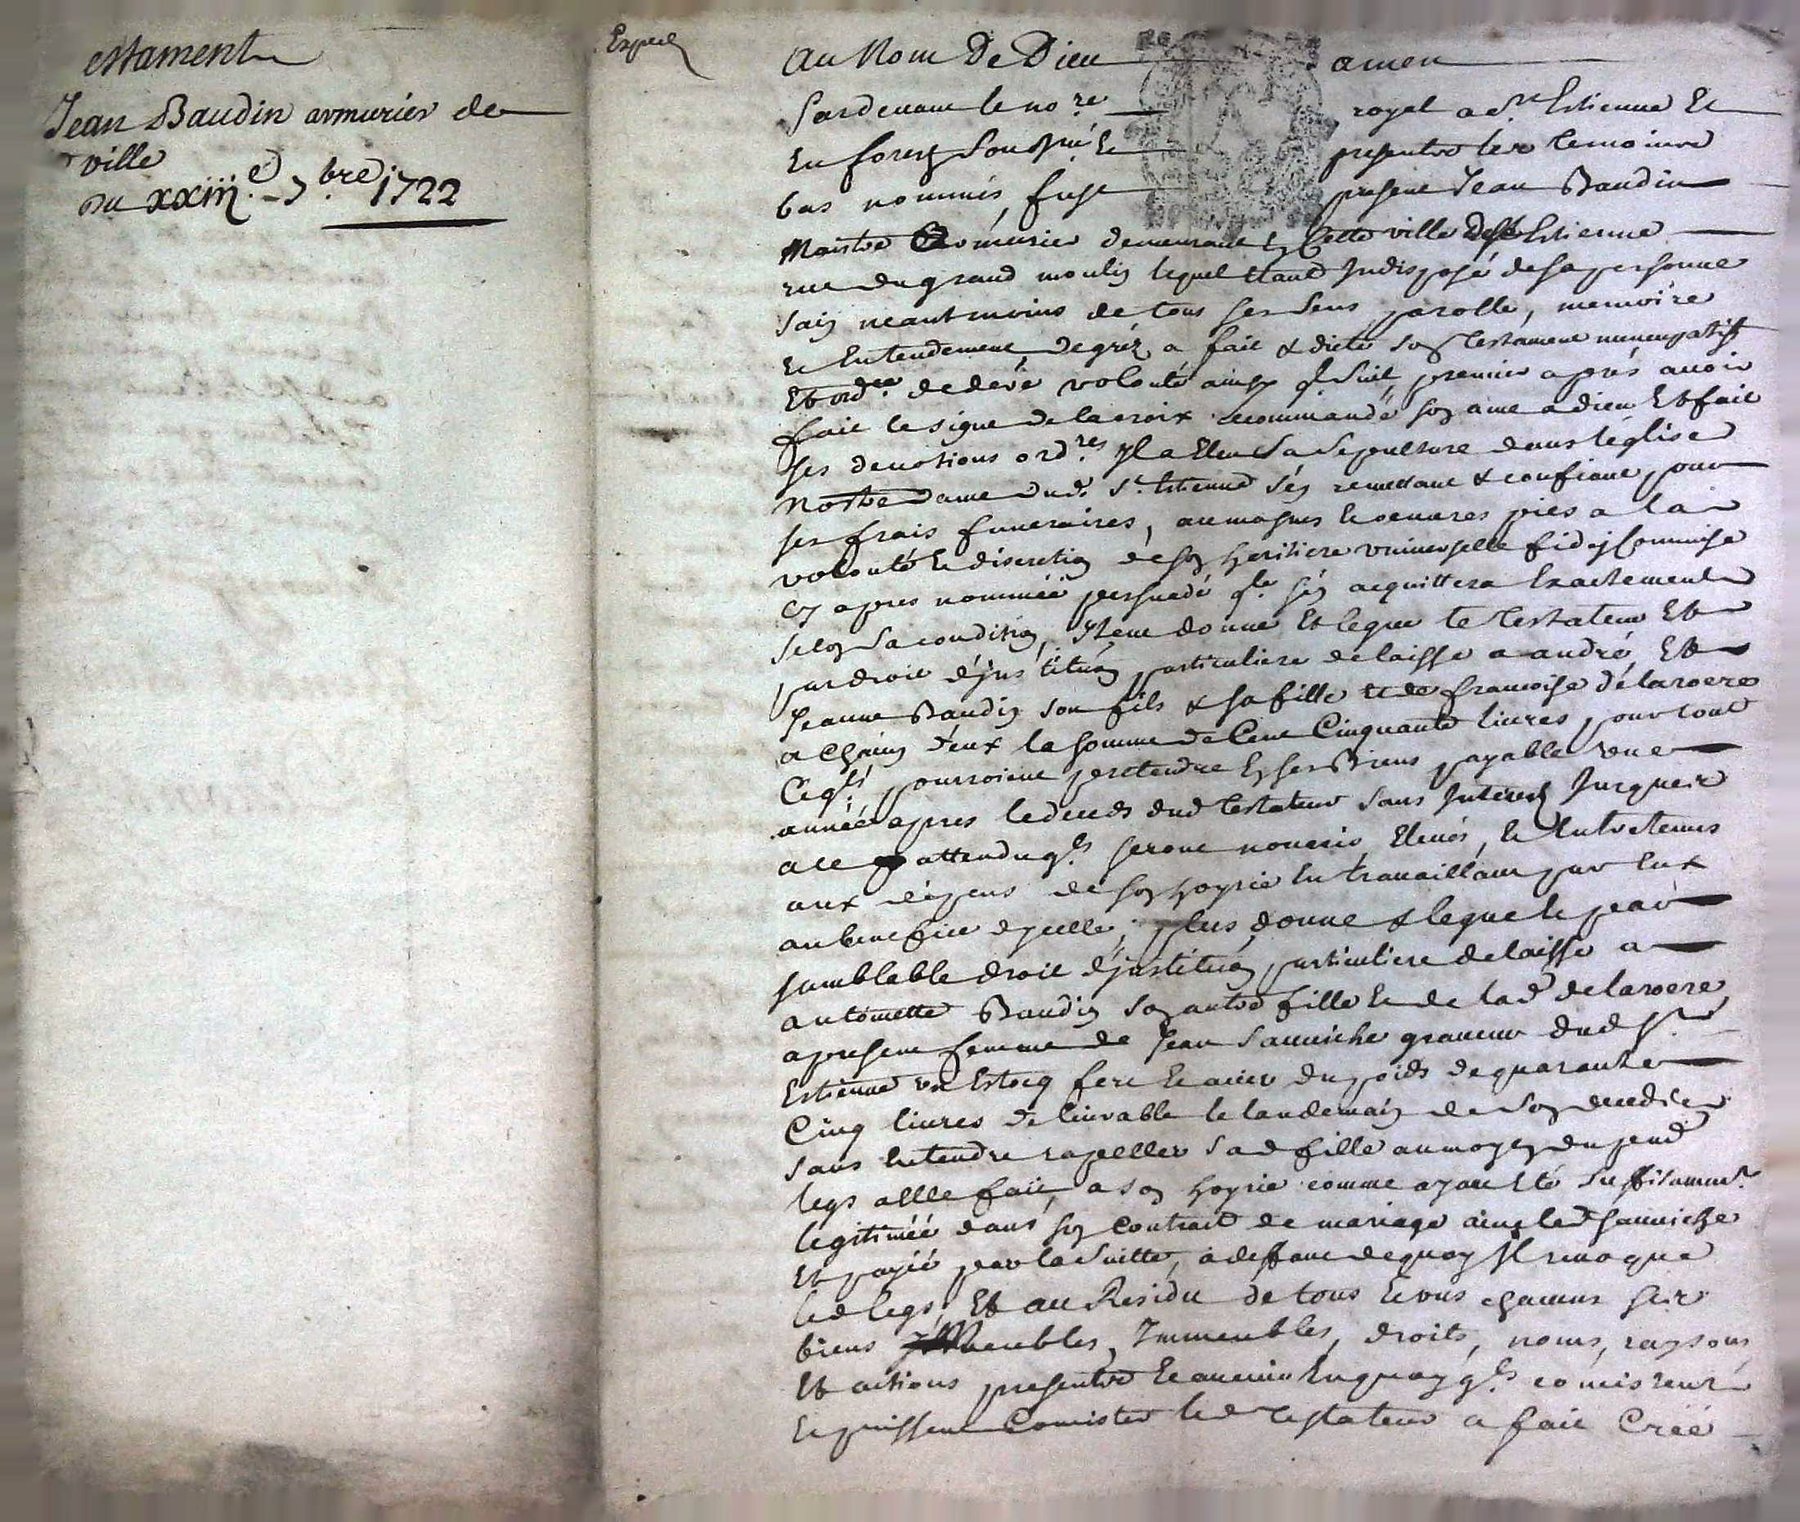 estament
Jean Baudin armurier de
ville
Du xxiij.e 7.bre 1722
Exped
Au Nom De Dieu amen
Pardevant le no.re royal a St Estienne Et
En forez Soussigné Et presentes les temoins
bas nommés, fust present Jean Baudin
Maistre Armurier demeurant en Cette ville de St Estienne
rue du grand moulin lequel Etant Indisposé de sa personne
Sain neantmoins de tous ses sens, parolle, memoire
Et Entendement, de gréz a fait & dicté son Testament nuncupatif
Et ord.re de dere volonté ainsy q. Suit, premier aprés avoir
fait le signe de la croix recommandé son ame a dieu Et fait
ses devotions ord.res Il a Eleu Sa Sepulture dans l'églize
Nostre dame dud. St Estienne s'én remettant & confiant pour
ses frais funeraires, aumosnes Et oeuvres pies a la
volonté Et discretion de son heritiere universelle fideicommise
cy apres nommée persuadé q.le s'én acquittera Exactement
selon sa condition, Item donne Et legue le Testateur Et
par droit d'institution particuliere delaisse a andré, Et
Jeanne Baudin son fils & sa fille et de francoise délaroere
a chacun d'eux la somme de Cent Cinquante livres, pour tout
Ceq.ls pourroient pretendre En ses Biens payable une
année apres le deceds dud Testateur sans Interest Jusques
a ce attendu q.ls seront nourris, Elevés, Et Entretenus
aux dépens de son hoyrie En travaillant par Eux
au benefice d'ycelle; plus, donne & legue le par
semblable droit d'institution, particuliere delaisse a
antoinette Baudin son autre fille Et de lad. delaroere,
a present femme de Jean graveur dud St
Estienne un Estocq fert Et acier du poids de quarante
Cinq livres delivrable le landemain de son deceds
sans Entendre rapelller sad fille au moyen du pend
legs a Elle fait, a son hoyrie comme ayant Eté suffisamm.t
legitimée dans son Contrait de mariage avec led
Et payée par la suitte, a deffaut de quoy Il revoque
led legs, Et au Residu de tous Et uns chacuns ses
biens Meubles, Immeubles, droits, noms, raysons
Et actions presents Et avenir En quoy q.ls consistent
Et puissent Concister led Testateur a fait Créé